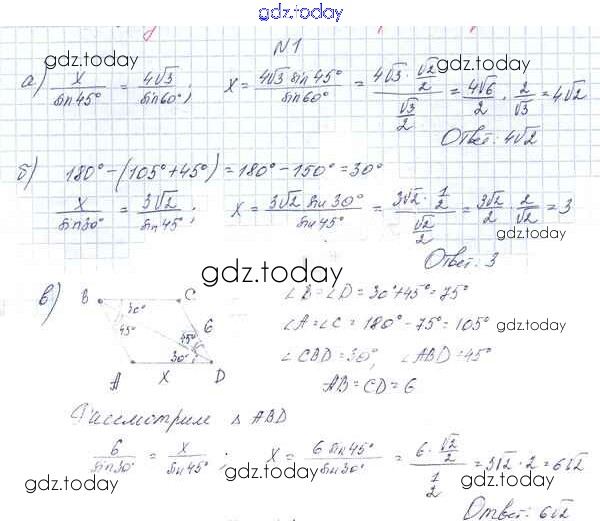 gdz.today
gdz.today gdz.today
N1
а) x/sin45° = 4√3/sin60°; x = 4√3 sin45°/sin60° = (4√3 · √2/2)/(√3/2) = 4√6/2 · 2/√3 = 4√2
Ответ: 4√2
б) 180° - (105° + 45°) = 180° - 150° = 30°
x/sin30° = 3√2/sin45°; x = 3√2 sin30°/sin45° = (3√2 · 1/2)/(√2/2) = 3√2/2 · 2/√2 = 3
Ответ: 3
gdz.today
в) B C 30° 45° 6 45° 30° A X D
∠B = ∠D = 30° + 45° = 75°
∠A = ∠C = 180° - 75° = 105° gdz.today
∠CBD = 30°, ∠ABD = 45°
AB = CD = 6
Рассмотрим Δ ABD
6/sin30° = x/sin45°; x = 6 sin45°/sin30° = (6 · √2/2)/(1/2) = 3√2 · 2 = 6√2
gdz.today gdz.today gdz.today
Ответ: 6√2